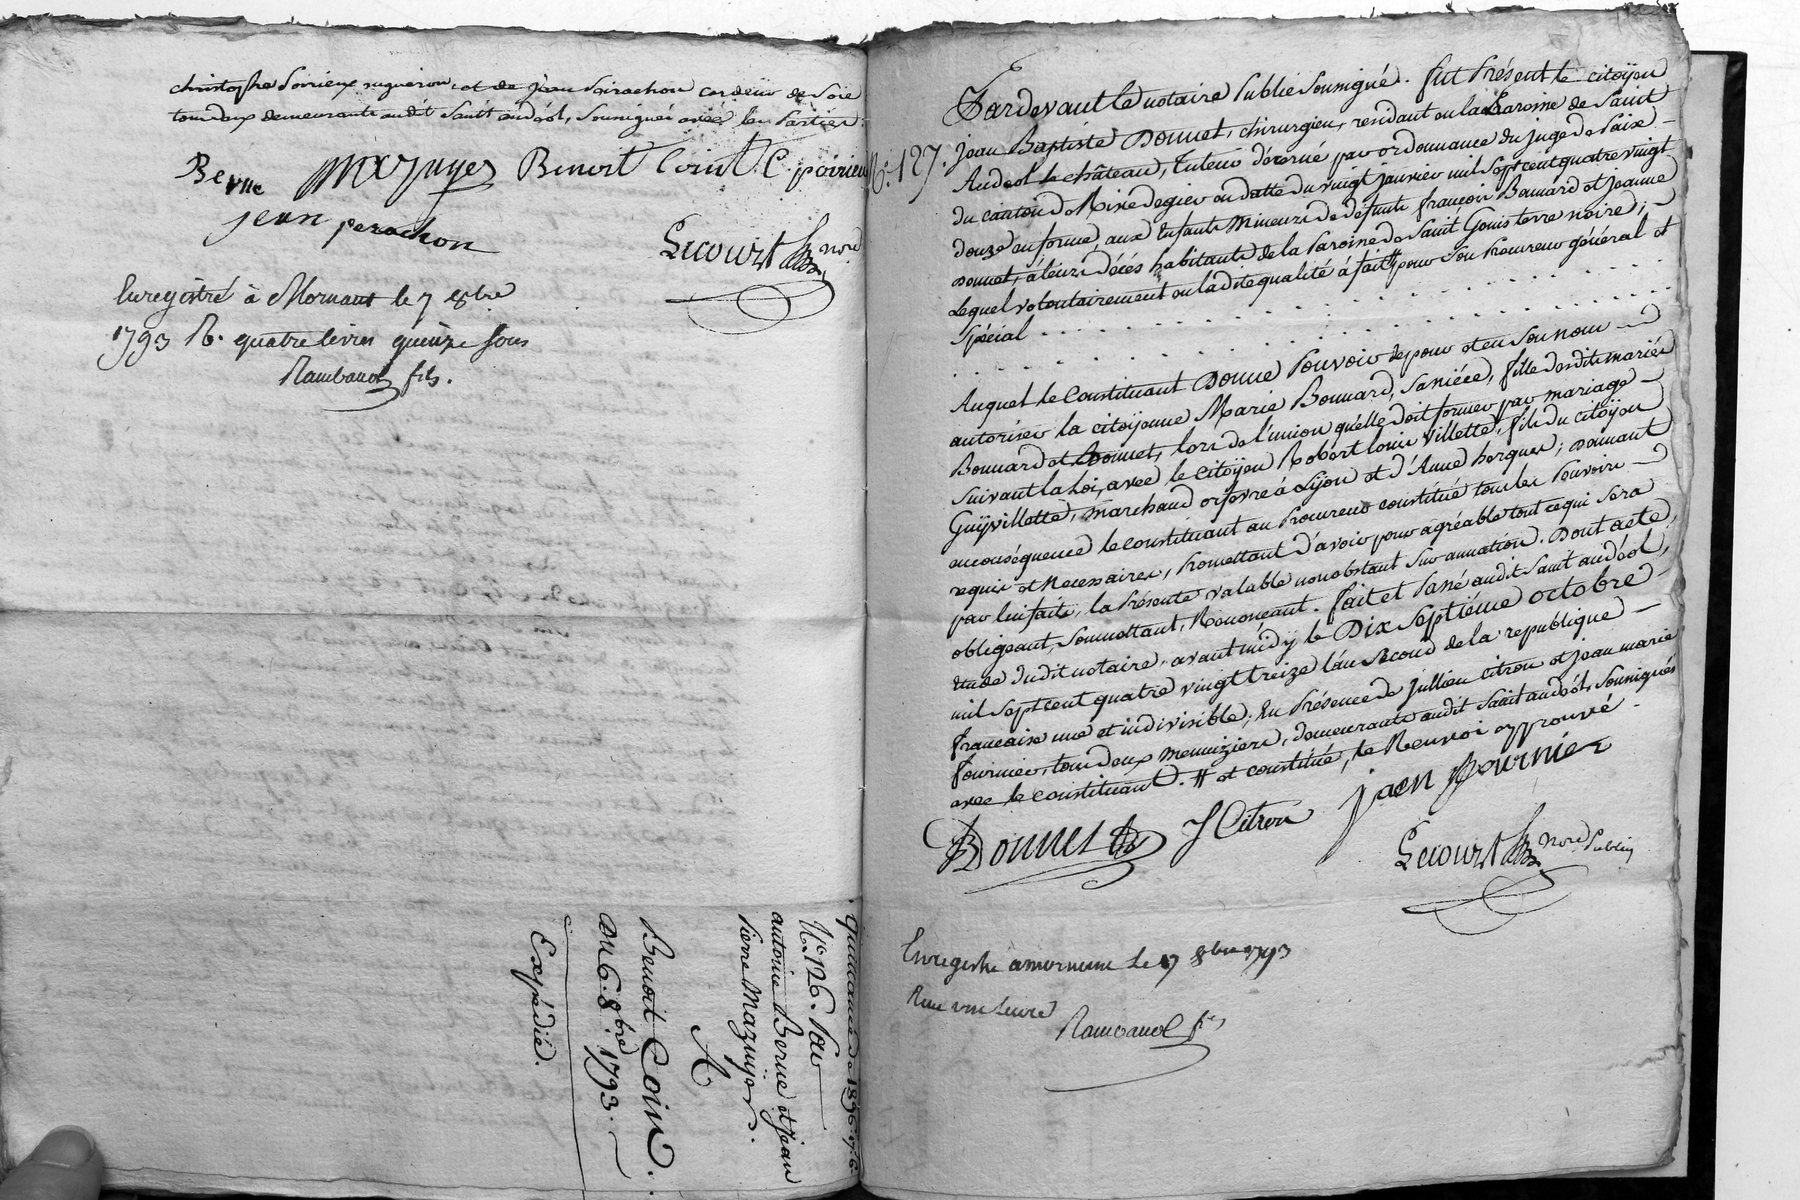 christophe Poirieux vigneron, et de jean Peirachon cardeur de Soie
tous deux demeurants audit Saint andéol, Soussignés avec les Parties.
Berne mazuyer Benoit Coint C. poirieux
jean perachon
Lecourt nore
Enregistré à Mornant le 7 8bre
1793 R. quatre livres quinze Sous
Rambaud fils.
quittance de 1896.17.6.
N.o 126. Par
antoine Berne et Jean
Pierre Mazuyer.
A
Benoit Coint.
du 6. 8.bre 1793.
Expédié.
N.o 127.
Pardevant le notaire Public Soussigné. fut Présent le citoÿen
jean Baptiste Donnet, chirurgien, residant en la Paroisse de Saint
Andéol le château, Tuteur décerné par ordonnance du juge de Paix
du canton de Rive de gier en datte du vingt janvier mil Sept cent quatre vingt
douze en forme, aux Enfants Mineurs de defunts françois Bonnard et jeanne
Donnet, à leurs décés habitants de la Paroisse de Saint Genis terre noire;
Lequel volontairement en la dite qualité à fait # pour Son Procureur général et
Spécial
Auquel le Constituant Donne Pouvoir de pour et en Son nom
autoriser la citoÿenne Marie Bonnard, Sa niéce, fille desdits mariés
Bonnard et Donnet, lors de l'union qu'elle doit former par mariage
suivant la Loi, avec le citoÿen Robert Louis Villette, fils du citoÿen
Guÿ villette, Marchand orfevre à Lÿon et d'Anne horques; Donnant
en conséquence le constituant au Procureur constitué tous les Pouvoirs
requis et Nécessaires, Promettant d'avoir pour agréable tout ce qui sera
par lui fait, la Présente valable nonobstant Sur annation. Dont acte
obligeant, Soumettant, Renonçant. fait et Passé audit Saint andéol,
étude dudit notaire, avant midÿ le Dix Septiéme octobre
mil Sept cent quatre vingt treize l'an Second de la republique
francaise une et indivisible; En Présence de Jullien citron et jean marie
fournier, tous deux menuiziers, demeurants audit Saint andéol, Soussignés
avec le constituant. # et constitué, le Renvoi approuvé.
Donnet J Citron jaen fournier
Lecourt nore Public
Enregistré a mornant Le 17 8bre 1793
Reçu une Livre
Rambaud fils